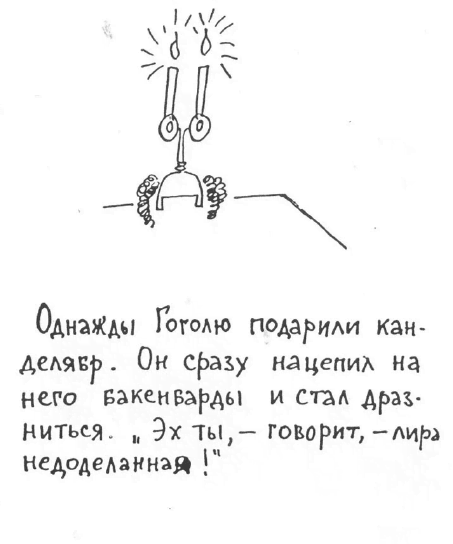 Однажды Гоголю подарили кан-
делябр. Он сразу нацепил на
него бакенбарды и стал драз-
ниться. „Эх ты, – говорит, – лира
недоделанная!"